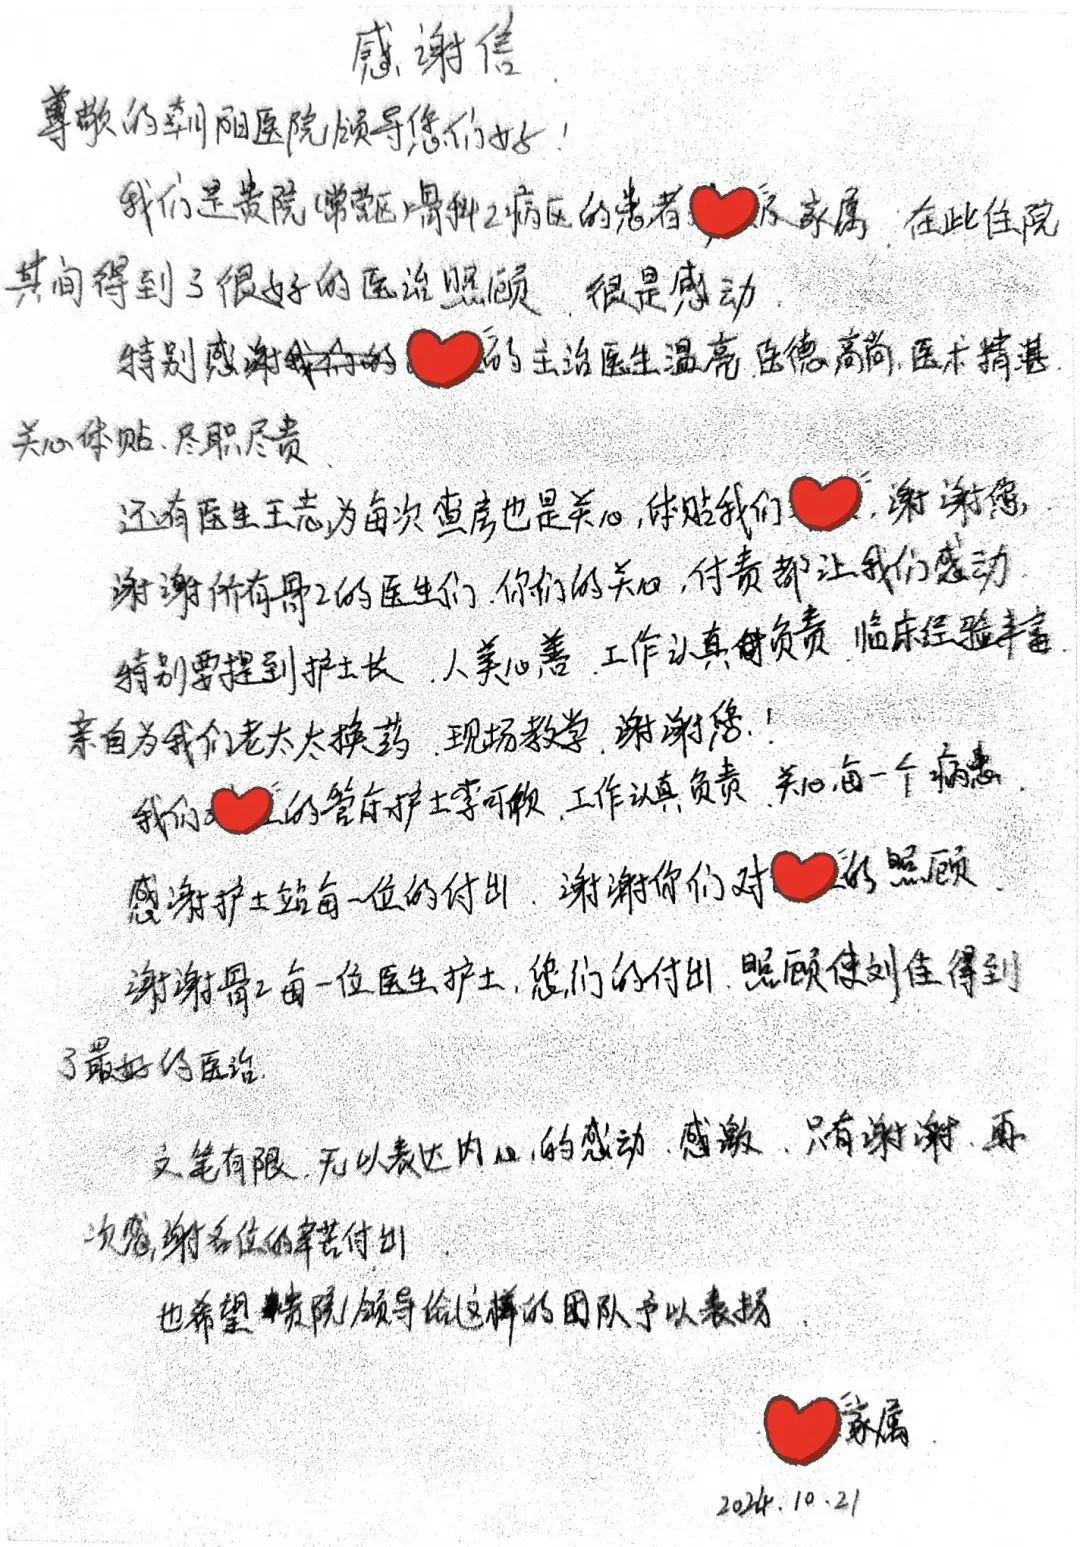 感谢信
尊敬的朝阳医院领导您们好！
我们是贵院(常营区)骨科2病区的患者 家属 在此住院
其间得到了很好的医治照顾、很是感动.
特别感谢 的主治医生温亮、医德高尚、医术精湛.
关心体贴、尽职尽责
还有医生王志为每次查房也是关心,体贴我们 .谢谢您,
谢谢所有骨2的医生们、你们的关心,付责都让我们感动
特别要提到护士长、人美心善、工作认真负责 临床经验丰富
亲自为我们老太太换药、现场教学、谢谢您！
我们 的管床护士李可欣、工作认真负责、关心每一个病患.
感谢护士站每一位的付出、谢谢你们对 的照顾、
谢谢骨2每一位医生护士,您们的付出、照顾使刘佳得到
了最好的医治.
文笔有限、无以表达内心的感动、感激、只有谢谢、再
次感谢各位的辛苦付出
也希望贵院领导给这样的团队予以表扬
家属.
2024.10.21